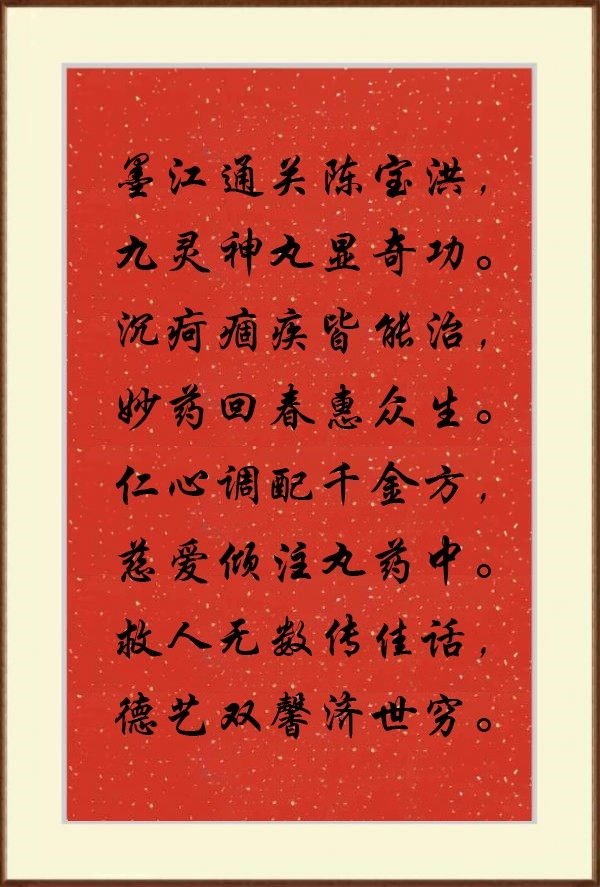 墨江通关陈宝洪，
九灵神丸显奇功。
沉疴痼疾皆能治，
妙药回春惠众生。
仁心调配千金方，
慈爱倾注丸药中。
救人无数传佳话，
德艺双馨济世穷。